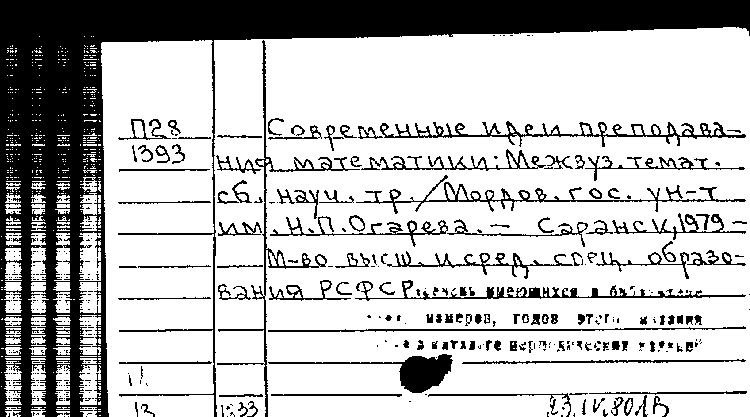 П28
1393
Современные идеи преподава-
ния математики: Межвуз. темат.
сб. науч. тр. / Мордов. гос. ун-т
им. Н.П.Огарева. — Саранск, 1979 –
М-во высш. и сред. спец. образо-
вания РСФСР.
имеющихся в
номеров, годов этого издания
в каталоге периодических изданий
13 1533 23.IV.80